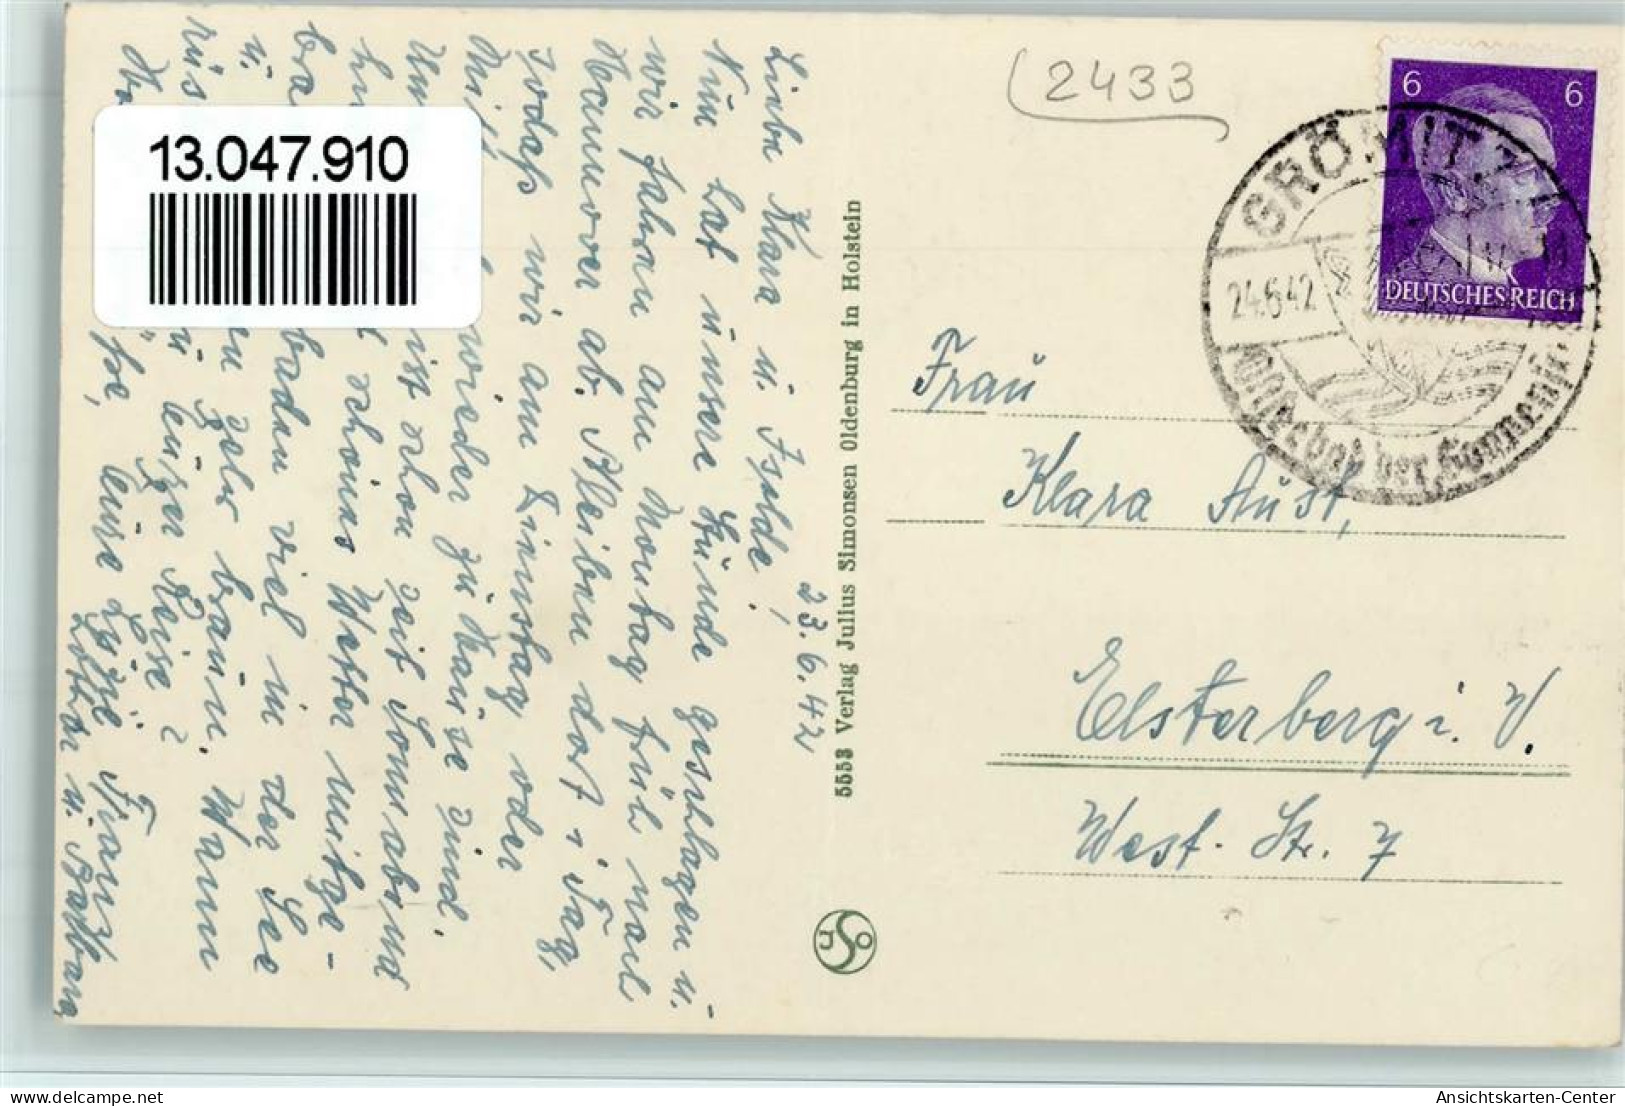 13.047.910
(2433
6 6
DEUTSCHES REICH
GRÖMITZ
24.6.42
Ostseebad der Sonnen
23.6.42
Liebe Klara u. Isolde!
Nun hat unsere Stunde geschlagen u.
wir fahren am Montag früh nach
Hannover ab. Bleiben dort 1 Tag,
sodaß wir am Dienstag oder
Mitt wieder zu Hause sind.
ist schon seit Sonnabend
schönes Wetter
baden viel in der See
u. sehr braun. Wann
eurer Reise?
eure Lysel Franz
Lothar u. Barbara
5553 Verlag Julius Simonsen Oldenburg in Holstein
JSO
Frau
Klara Aust,
Elsterberg i. V.
West-Str. 7
delcampe.net
Ansichtskarten-Center